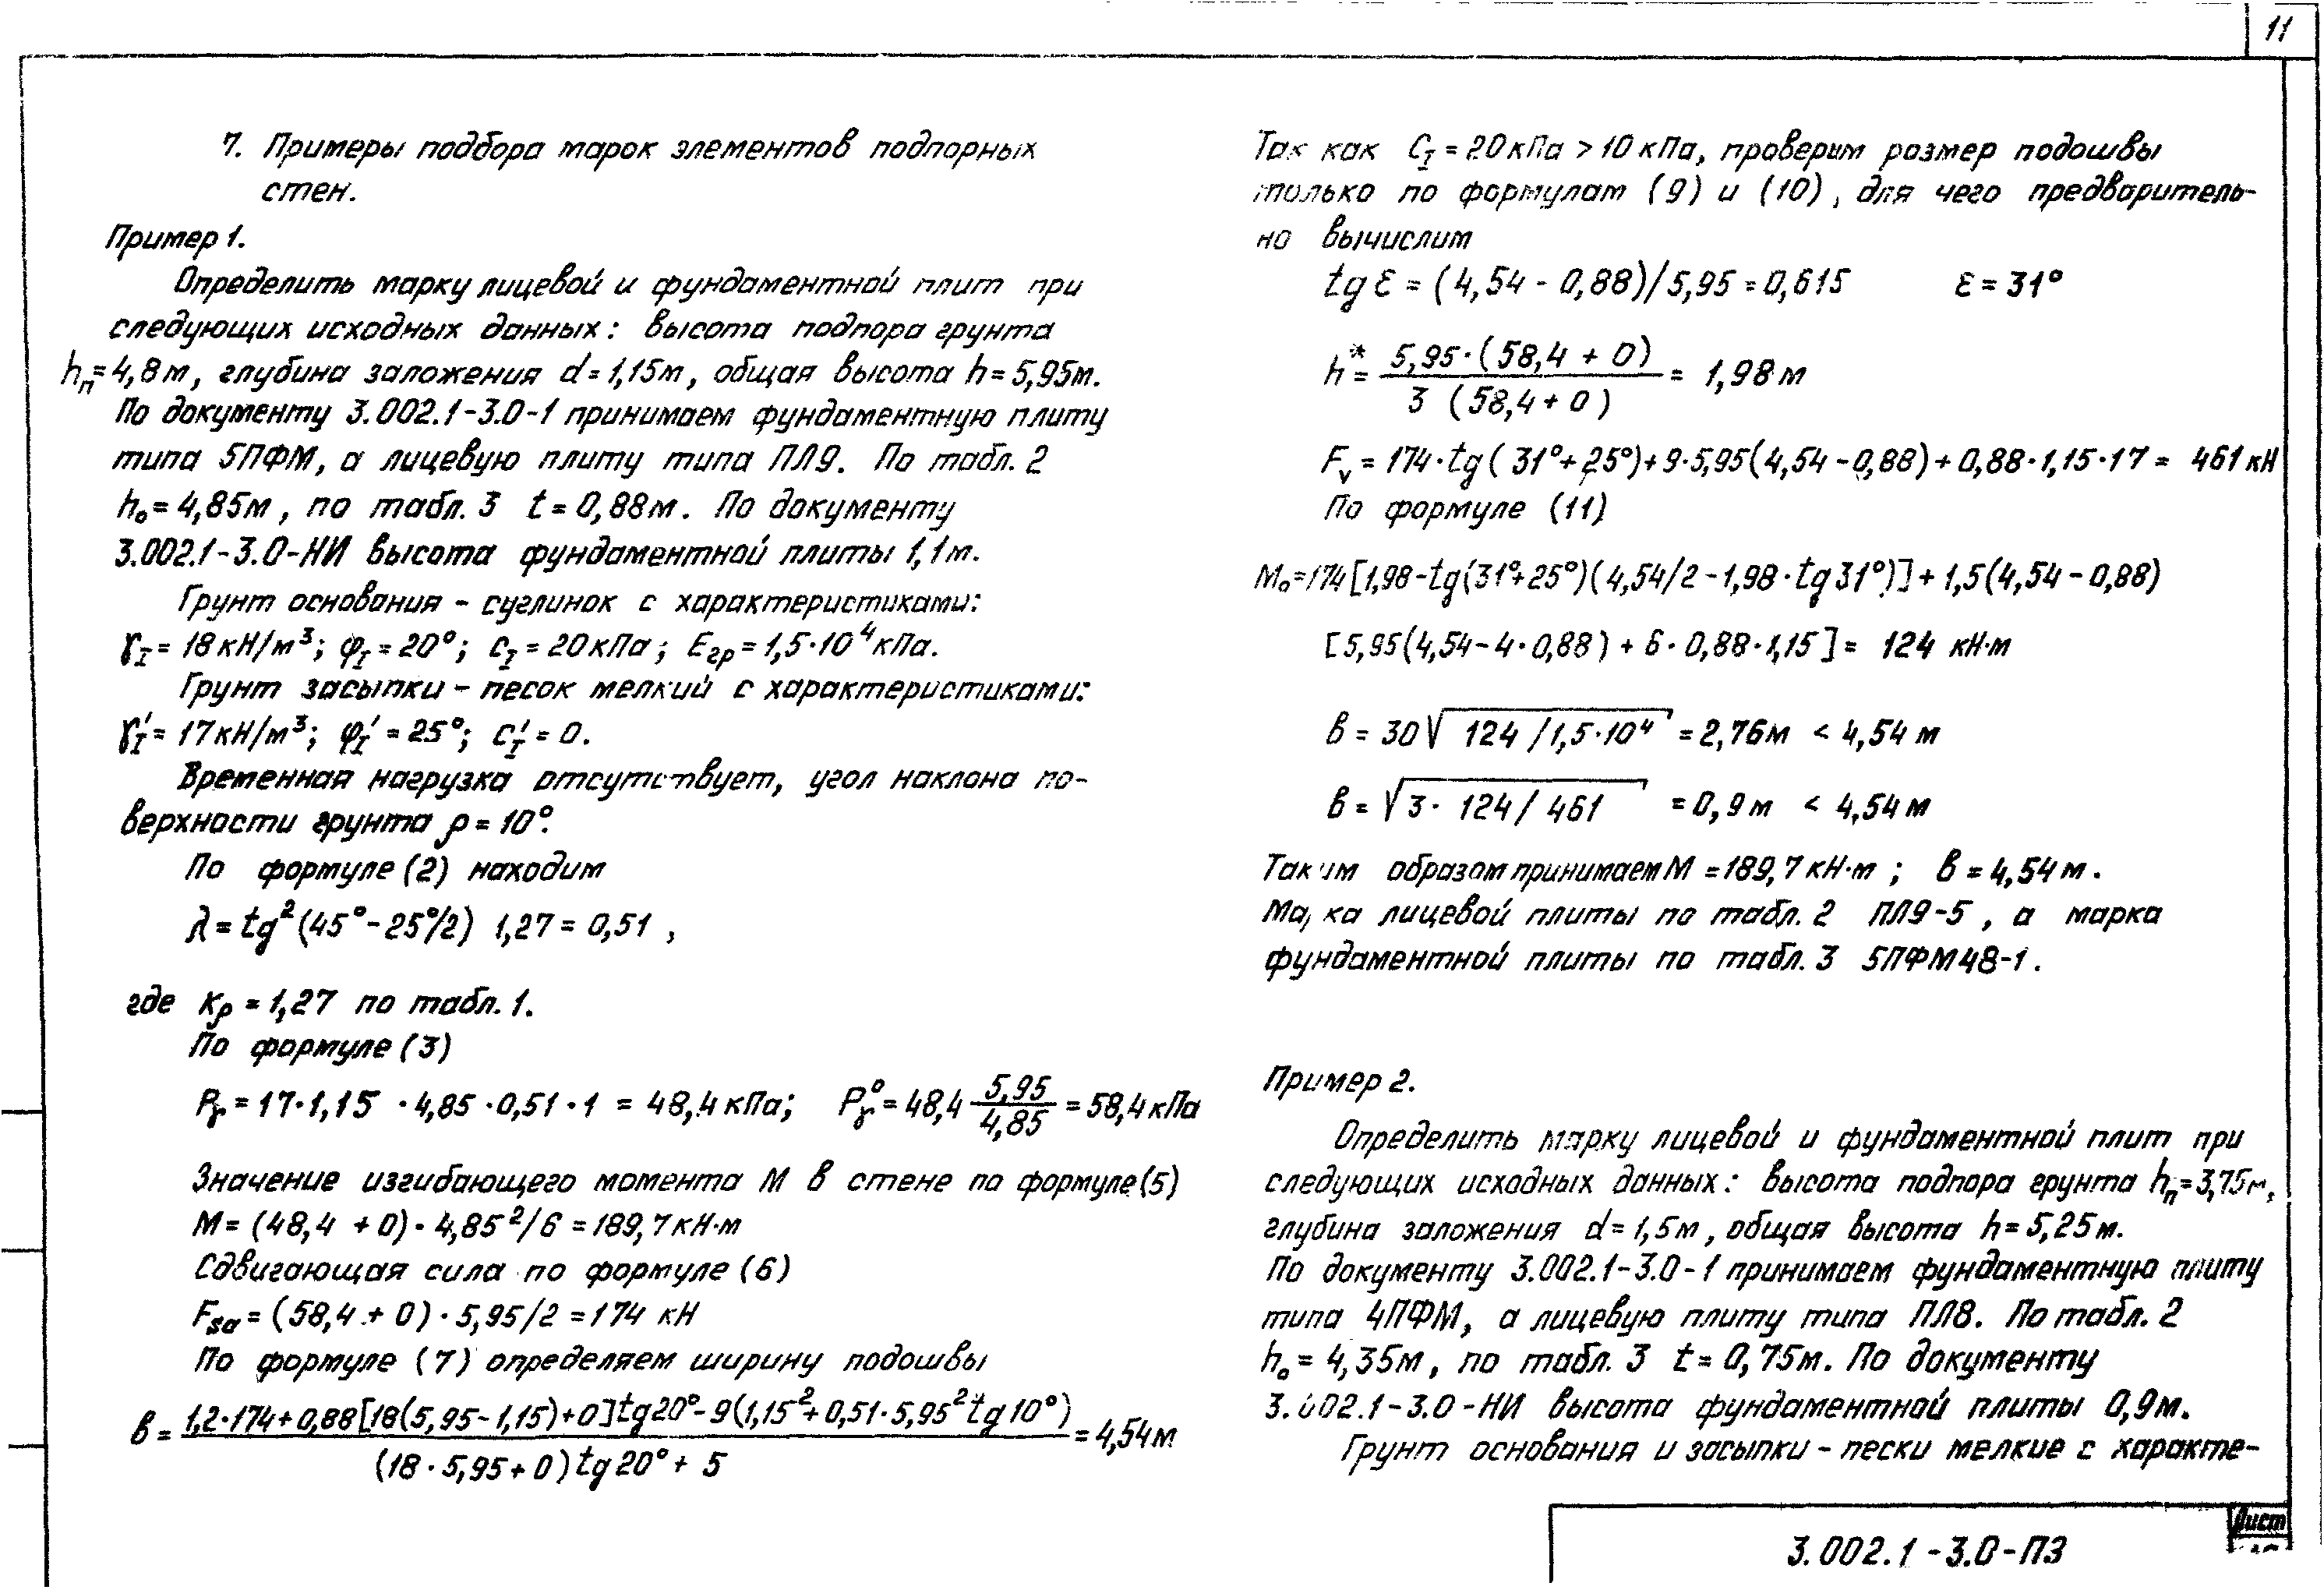 11
7. Примеры подбора марок элементов подпорных
стен.
Пример 1.
Определить марку лицевой и фундаментной плит при
следующих исходных данных: высота подпора грунта
hп=4,8м, глубина заложения d=1,15м, общая высота h=5,95м.
По документу 3.002.1-3.0-1 принимаем фундаментную плиту
типа 5ПФМ, а лицевую плиту типа ПЛ9. По табл. 2
h₀=4,85м, по табл. 3 t=0,88м. По документу
3.002.1-3.0-НИ высота фундаментной плиты 1,1м.
Грунт основания - суглинок с характеристиками:
γI=18кН/м³; φI=20°; cI=20кПа; Eгр=1,5·10⁴кПа.
Грунт засыпки - песок мелкий с характеристиками:
γ'I=17кН/м³; φ'I=25°; c'I=0.
Временная нагрузка отсутствует, угол наклона по-
верхности грунта ρ=10°.
По формуле (2) находим
λ=tg²(45°-25°/2) 1,27=0,51 ,
где Kρ=1,27 по табл. 1.
По формуле (3)
Pγ=17·1,15 ·4,85 ·0,51·1 = 48,4кПа; P⁰γ=48,4 5,95/4,85 =58,4кПа
Значение изгибающего момента М в стене по формуле (5)
М=(48,4 +0)·4,85²/6=189,7кН·м
Сдвигающая сила по формуле (6)
Fsa=(58,4+0)·5,95/2=174 кН
По формуле (7) определяем ширину подошвы
в= 1,2·174+0,88[18(5,95-1,15)+0]tg20°-9(1,15²+0,51·5,95²tg10°) / (18·5,95+0)tg20°+5 =4,54м
Так как CI=20кПа>10кПа, проверим размер подошвы
только по формулам (9) и (10), для чего предваритель-
но вычислим
tgε=(4,54-0,88)/5,95=0,615 ε=31°
h*= 5,95·(58,4+0) / 3 (58,4+0) = 1,98м
Fv=174·tg(31°+25°)+9·5,95(4,54-0,88)+0,88·1,15·17= 461кН
По формуле (11)
М₀=174[1,98-tg(31°+25°)(4,54/2-1,98·tg31°)]+1,5(4,54-0,88)
[5,95(4,54-4·0,88)+6·0,88·1,15]= 124 кН·м
в=30√124/1,5·10⁴ =2,76м < 4,54м
в=√3·124/461 =0,9м < 4,54м
Таким образом принимаем М=189,7кН·м ; в=4,54м.
Марка лицевой плиты по табл. 2 ПЛ9-5 , а марка
фундаментной плиты по табл. 3 5ПФМ48-1.
Пример 2.
Определить марку лицевой и фундаментной плит при
следующих исходных данных: высота подпора грунта hп=3,75м,
глубина заложения d=1,5м, общая высота h=5,25м.
По документу 3.002.1-3.0-1 принимаем фундаментную плиту
типа 4ПФМ, а лицевую плиту типа ПЛ8. По табл. 2
h₀=4,35м, по табл. 3 t=0,75м. По документу
3.002.1-3.0-НИ высота фундаментной плиты 0,9м.
Грунт основания и засыпки - пески мелкие с характе-
3.002.1-3.0-ПЗ
Лист